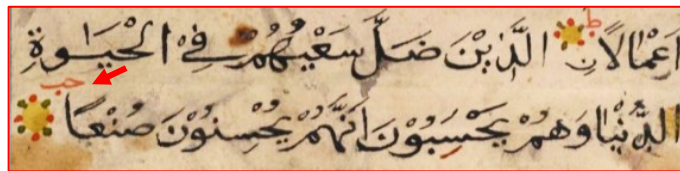 اَعْمَالًا ط الَّذِيْنَ ضَلَّ سَعْيُهُمْ فِي الْحَيٰوةِ
الدُّنْيَا وَهُمْ يَحْسَبُوْنَ اَنَّهُمْ يُحْسِنُوْنَ صُنْعًا